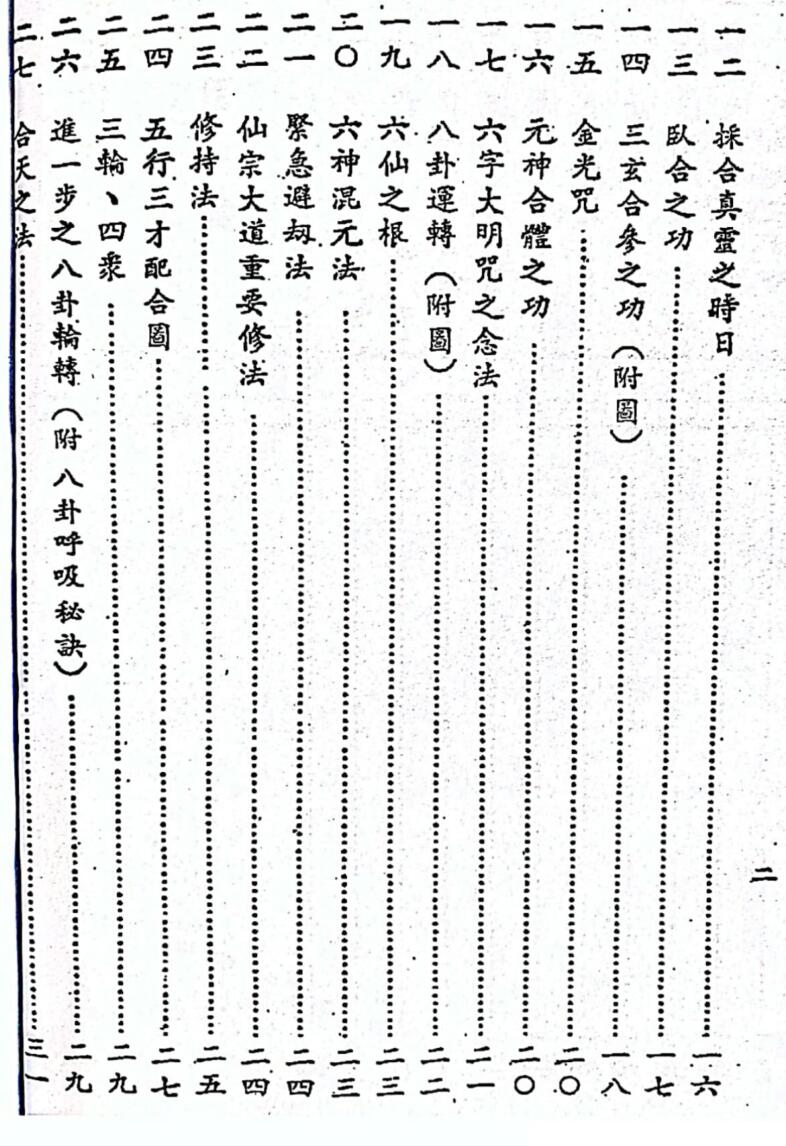 二
一二 採合真靈之時日……一六
一三 臥合之功……一七
一四 三玄合參之功（附圖）……一八
一五 金光咒……二〇
一六 元神合體之功……二〇
一七 六字大明咒之念法……二一
一八 八卦運轉（附圖）……二二
一九 六仙之根……二三
二〇 六神混元法……二三
二一 緊急避刼法……二四
二二 仙宗大道重要修法……二四
二三 修持法……二五
二四 五行三才配合圖……二七
二五 三輪、四衆……二九
二六 進一步之八卦輪轉（附八卦呼吸秘訣）……二九
二七 合天之法……三一